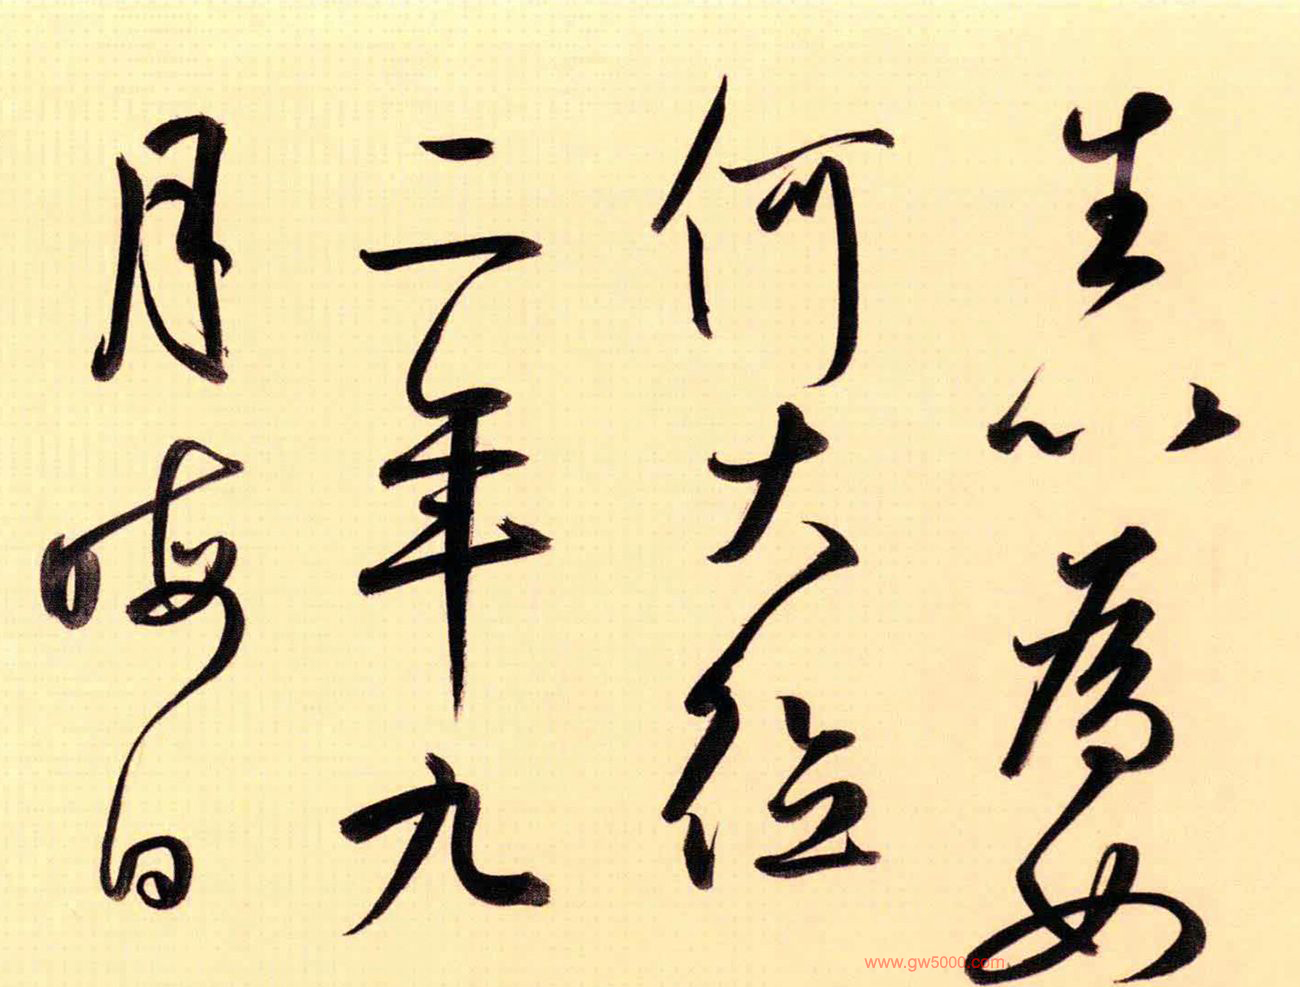 生以為如
何大德
二年九
月晦日
www.gw5000.com